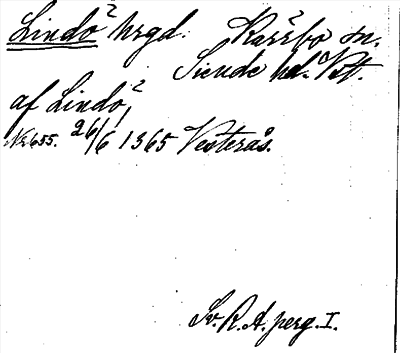 Lindö² hrgd. Kärrbo sn.
Siende hd. Vstl.
af Lindö²,
Nr 655. 26/6 1365 Vesterås.
Sv. R. A. perg. I.